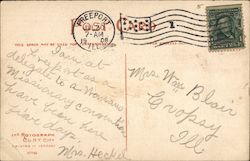 FREEPORT
7-AM
1908
ILL.
1
THIS SPACE MAY BE USED FOR
I am at
Freeport as
delegate to a Womans
Missionary convention
have been here
five days.
Mrs. Heckel
Mrs. Wm Blair
Cropsy
Ill
THE ROTOGRAPH